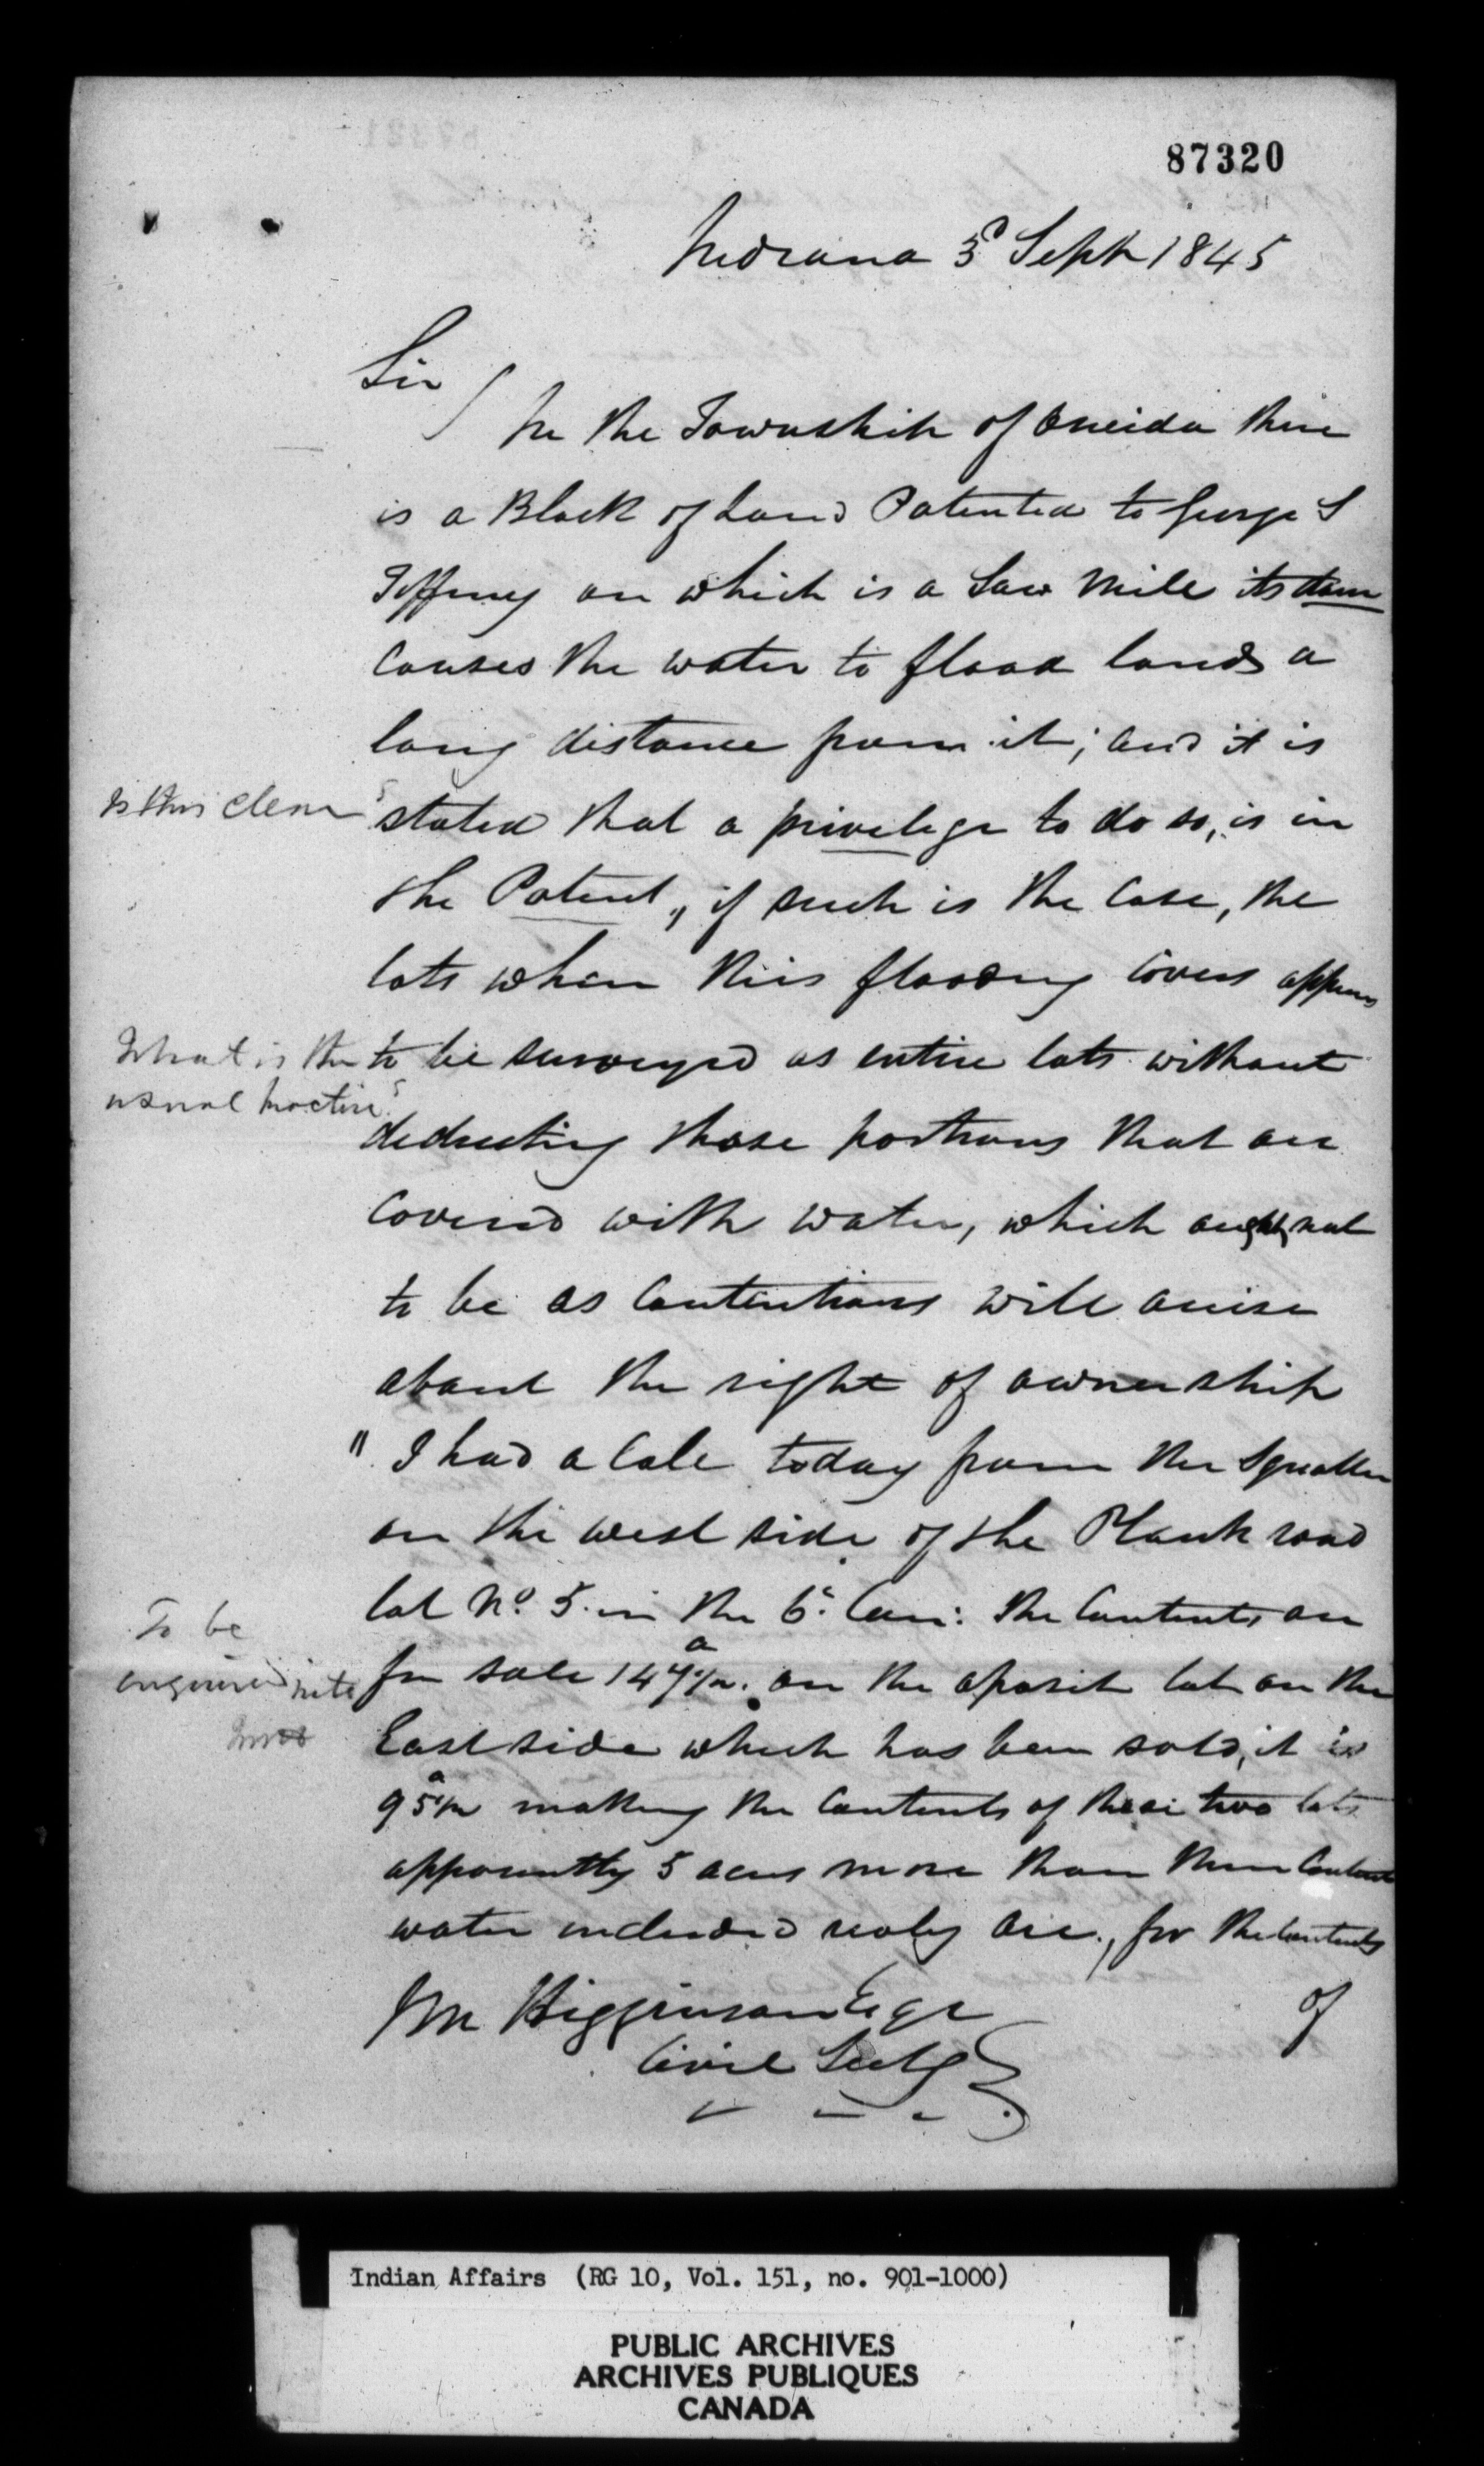 87320
Indiana 3d Sept 1845
Sir
In the Township of Oneida there
is a Block of Land Patented to George S
Tiffany on which is a Saw Mill its dam
Causes the water to flood lands a
long distance from it; and it is
Is this clear stated that a privelege to do so, is in
the Patent, if such is the Case, the
lots when this flooding Covers appears
What is the to be surveyed as entire lots without
usual practice
deducting those portions that are
Covered with water, which ought not
to be as Contentions will arise
about the right of ownership
" I had a Call today from the Squatter
on the west side of the Plank road
lot No. 5 in the 6th Con: the Contents are
To be
enquired into for sale 147 a on the oposit lot on the
East side which has been sold, it is
95 a making the Contents of these two lots
apparently 5 acres more than there Contents
water included realy are, for the Contents
of
Mr Higginson Esqr
Civil Secty
Indian Affairs (RG 10, Vol. 151, no. 901-1000)
PUBLIC ARCHIVES
ARCHIVES PUBLIQUES
CANADA